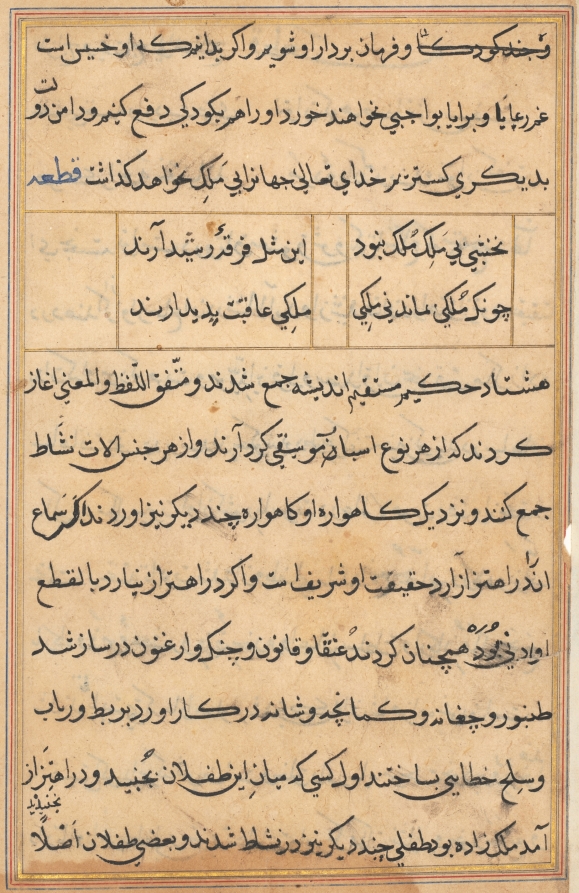 و چند کودک را و فرمان بردار او شویم و اکر بدانیم که او خسیس است
غم رعایا و برایا بواجبی نخواهند خورد او را هم بکودکی دفع کنیم و دامن دولت
بدیکری کستریم خدای تعالی جهانرا بی مَلِک نخواهد کذاشت قطعه
بخشی بی مَلِک مُلک نبود ابن مثل فرقهٔ رشید آرند
چونک مُلکی نماند بی مَلِکی ملکی عاقبت پدید ارند
هشتاد حکیم مستقیم اندیشه جمع شدند و متّفق اللّفظ والمعنی اغاز
کردند که از هر نوع اسباب موسقی کرد آرند و از هر جنس الات نشاط
جمع کنند و نزدیک کاهواره او کاهواره چند دیکر نیز اوردند اکر سماع
انرا در اهتزاز آرد حقیقت او شریف است و اکر در اهتراز نیارد بالقطع
او ادنی بُوَد همچنان کردند عنقا و قانون و چنک و ارغنون در ساز شد
طنبور و چغانه و کمانچه و شانه در کار اورد بربط و رباب
و سلح خطایی بساختند اول کسی که میان این طفلان بجنبید و در اهتزاز
آمد ملک زاده بود طفلی چند دیکر نیز در نشاط شدند و بعضی طفلان اَصْلًا
بجنبیدند